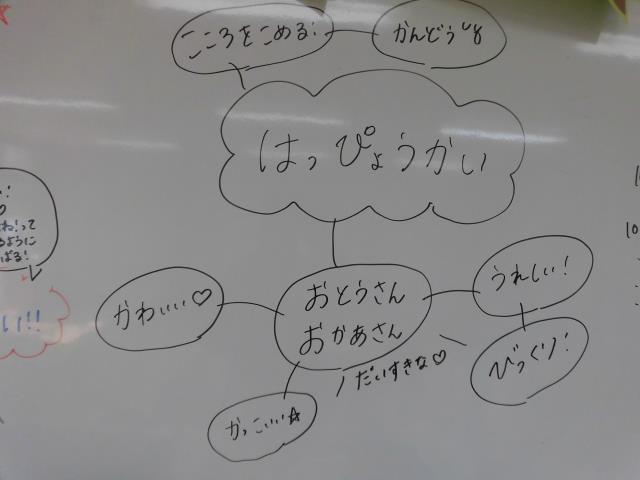 こころをこめる!
かんどう
はっぴょうかい
ね!って
ように
ばる!
い!!
かわいい♡
おとうさん
おかあさん
うれしい!
びっくり!
だいすきな♡
かっこいい☆
10